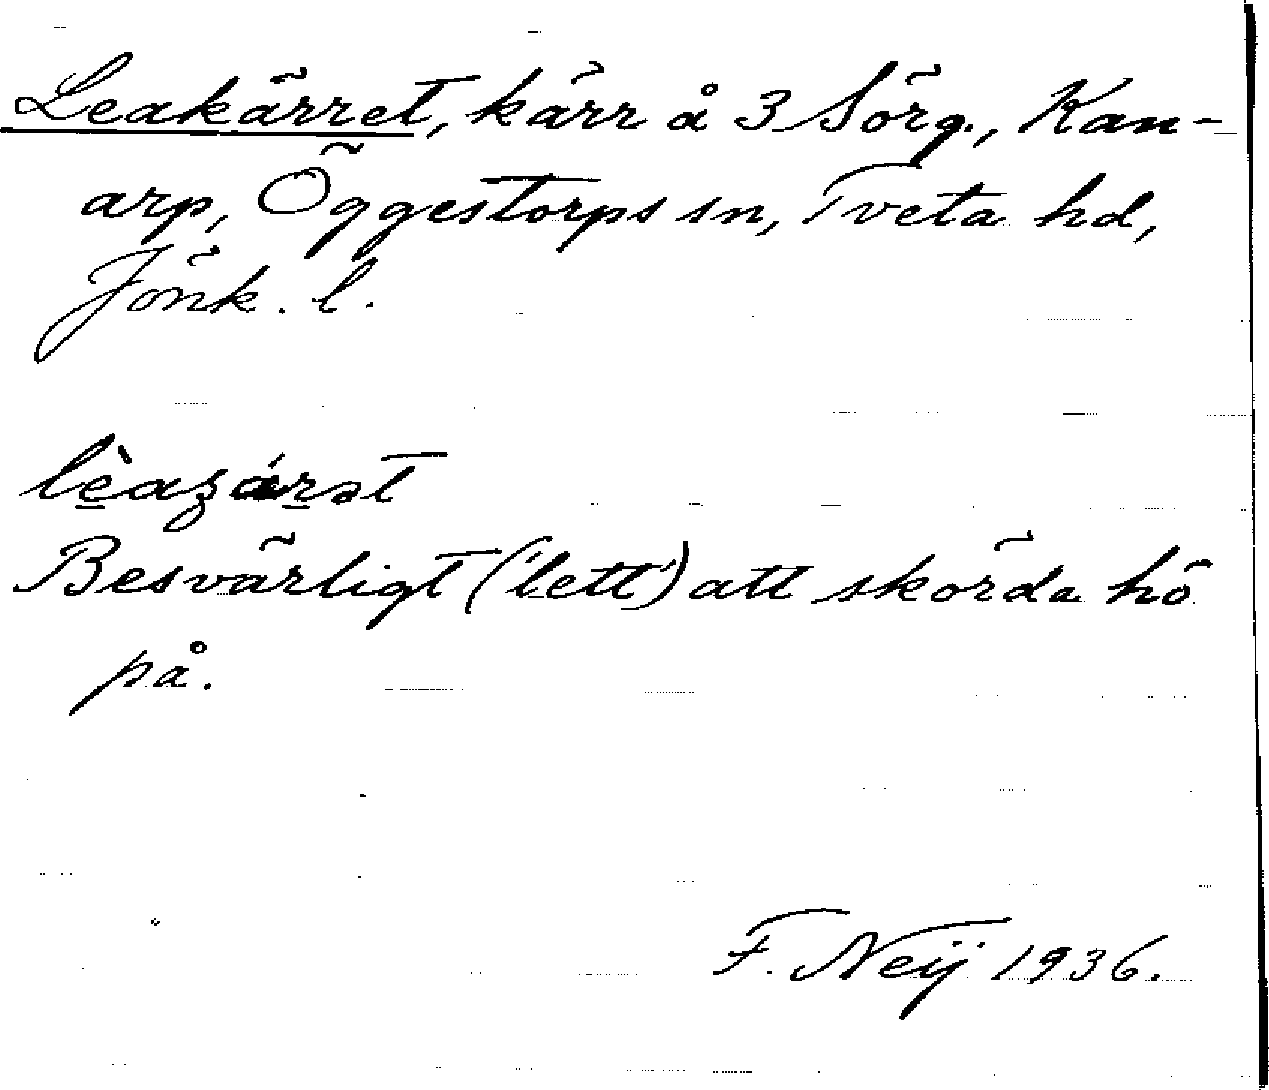 Leakärret, kärr å 3 Sörg., Kan-
arp, Öggestorps sn, Tveta hd,
Jönk. l.
Besvärligt ('lett') att skörda hö
på.
F. Neij 1936.